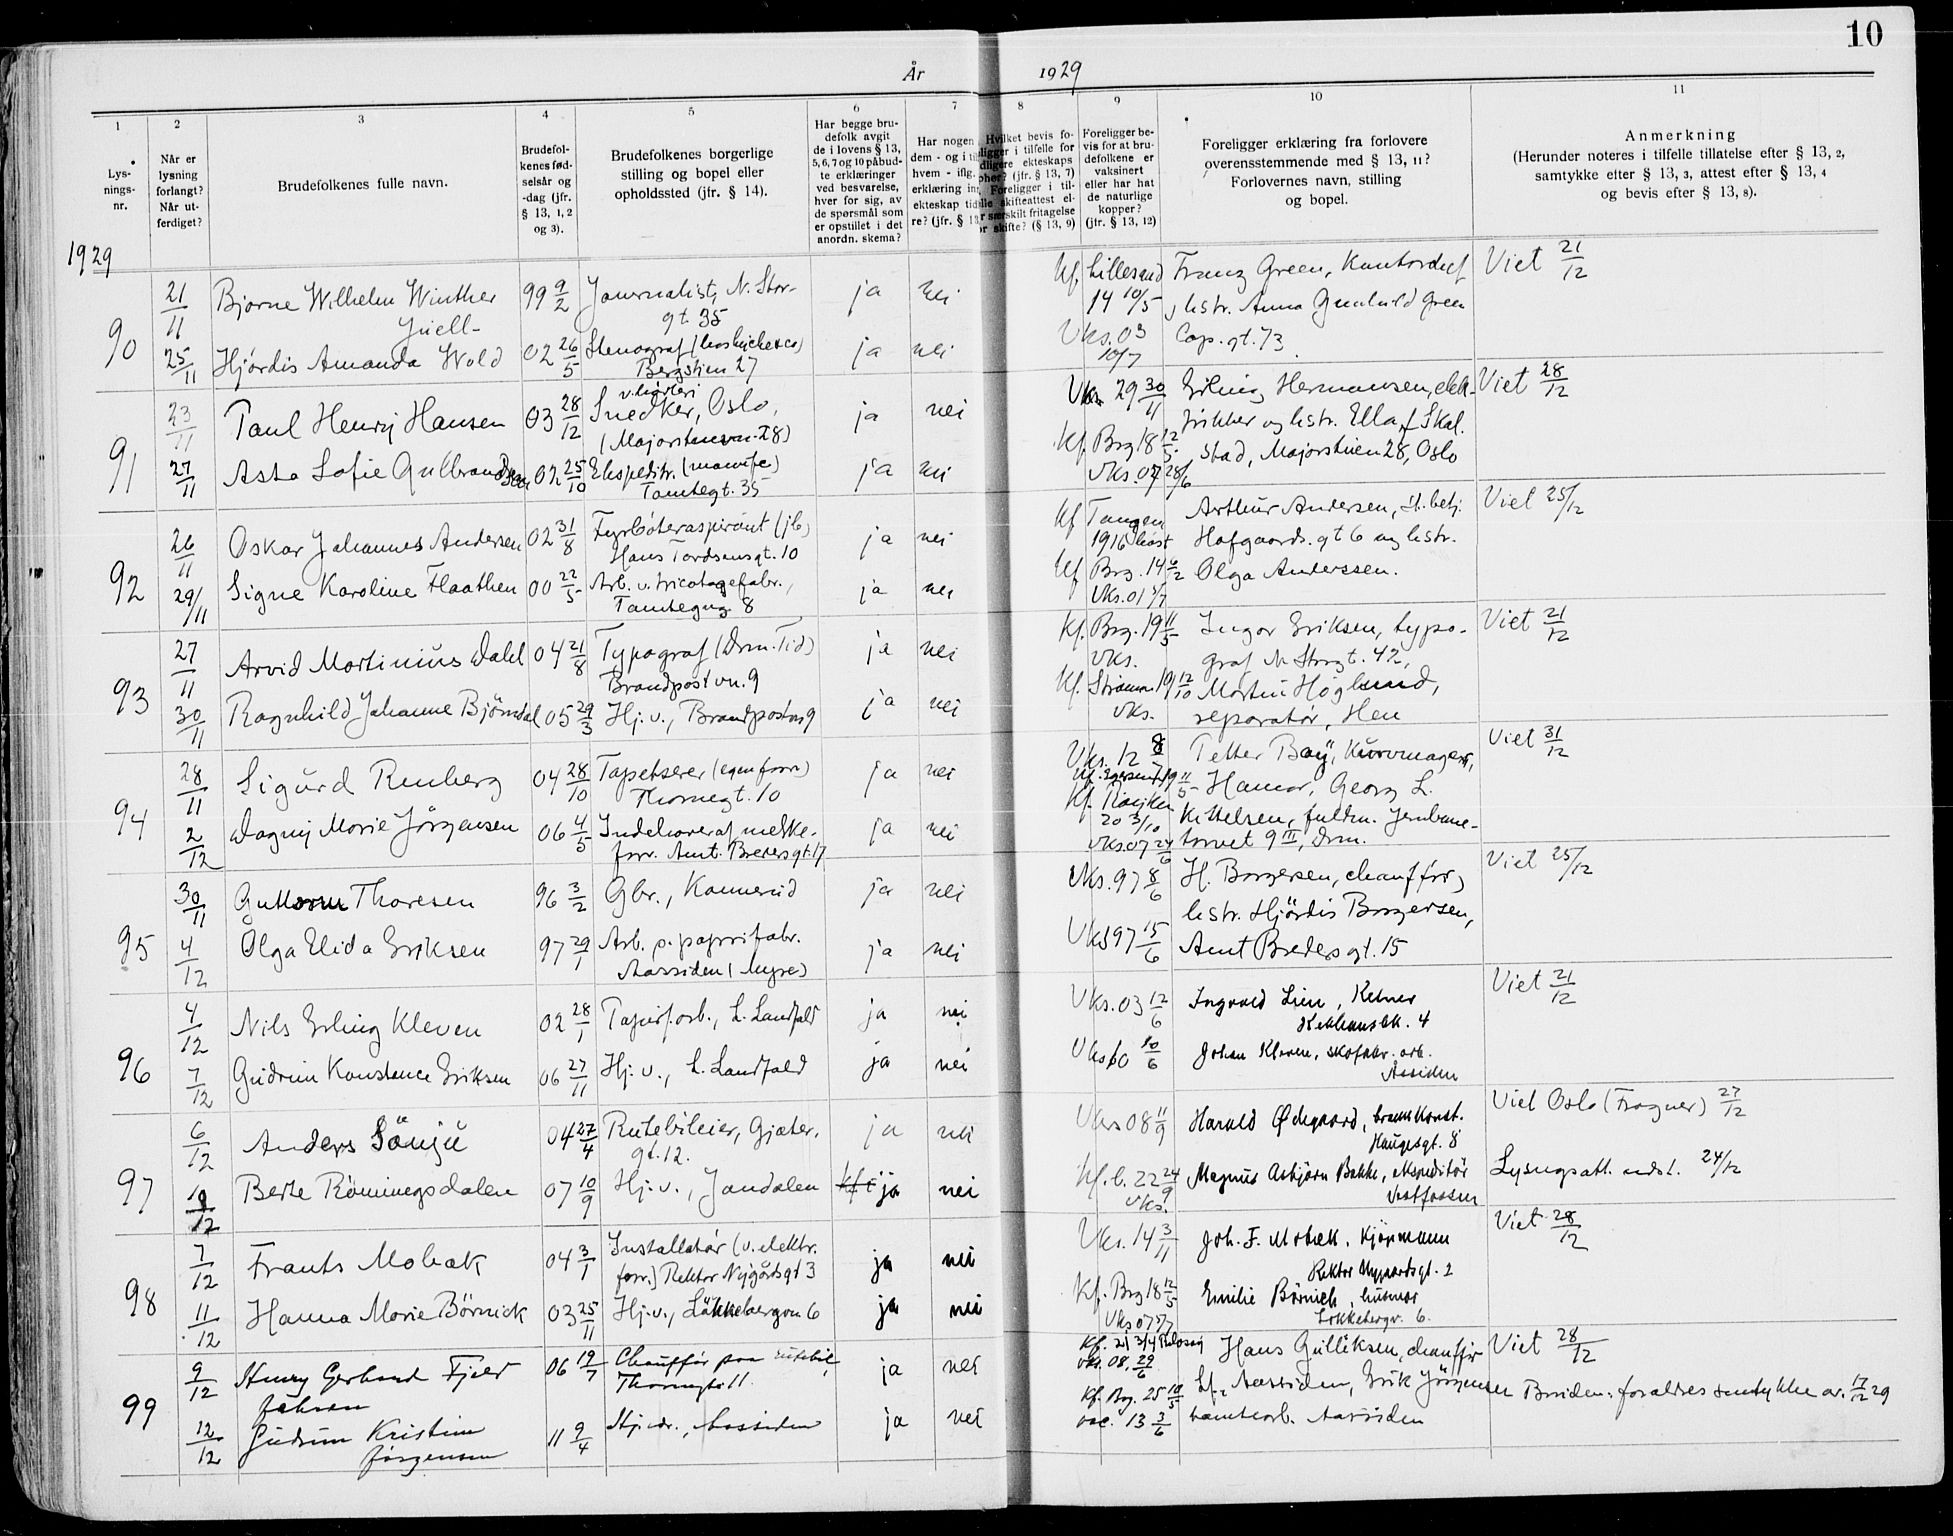 10
År 1929
1 2 3 4 5 6 7 8 9 10 11
Lys-
nings-
nr.
Når er
lysning
forlangt?
Når ut-
ferdiget?
Brudefolkenes fulle navn.
Brudefol-
kenes fød-
selsår og
-dag (jfr.
§ 13, 1, 2
og 3).
Brudefolkenes borgerlige
stilling og bopel eller
opholdssted (jfr. § 14).
Har begge bru-
defolk avgit
de i lovens § 13,
5, 6, 7 og 10 påbud-
te erklæringer
ved besvarelse,
hver for sig, av
de spørsmål som
er opstillet i det
anordn. skema?
Har nogen
dem - og i
hvem - iflg.
erklæring
ekteskap
re? (jfr. §
Hvilket bevis fo-
ligger i tilfelle for
ekteskaps
(jfr. § 13, 7)
Foreligger i til-
skifteattest el-
særskilt fritagelse
skifte? (§ 13, 9)
Foreligger be-
vis for at bru-
defolkene er
vaksinert
eller har hat
de naturlige
kopper?
(jfr. § 13, 12)
Foreligger erklæring fra forlovere
overensstemmende med § 13, 11?
Forlovernes navn, stilling
og bopel.
Anmerkning
(Herunder noteres i tilfelle tillatelse efter § 13, 2,
samtykke efter § 13, 3, attest efter § 13, 4
og bevis efter § 13, 8).
1929
90
21/11 Bjarne Wilhelm Winther 99 9/2 Journalist, N. Stor-
Juell- gt. 35 ja nei
Kf. Lillesand 14 10/5 Franz Green, Kontorchef
, hstr. Anna Gunhild Green
Viet 21/12
25/11 Hjördis Amanda Wold 02 26/5 Stenograf
Bergstien 27 ja nei
Vks. 03 10/7 Cap. gt. 73
91
23/11 Paul Henry Hansen 03 28/12 Snedker, Oslo,
(Majorstuevn. 28) ja nei
Vks. 29 30/11 Erling Hermansen, elek-
trikker og hstr. Ella Skal-
Viet 28/12
27/11 Asta Sofie Gulbrandsen 02 25/10 Ekspeditr. (manuf.)
Tomtegt. 35 ja nei
Kf. Brg 18 12/5 stad, Majorstuen 28, Oslo
Vks. 07 28/6
92
26/11 Oskar Johannes Andersen 02 31/8 Fyrböteraspirant (jb)
Hans Tordsensgt. 10 ja nei
Kf Tangen Arthur Andersen, st. betj.
1916 høst Hofgaards. gt 6 og hstr.
Viet 25/12
29/11 Signe Karoline Flaathen 00 22/5 Arb. v. tricotagefabr.,
8 ja nei
Kf Brg. 14 Olga Anderssen.
Vks. 01 5/7
93
27/11 Arvid Martinius Dahl 04 21/8 Typograf (Drm. Tid)
Brandpostvn. 9 ja nei
Kf. Brg. 19 11/5 Ingar Eriksen, typo-
Vks. graf N. Strgt. 42,
Viet 21/12
30/11 Ragnhild Johanne Björndal 05 29/3 Hj. v., Brandpostvn 9 ja nei
Kf. Strøms. 19 12/10 Martin Höglund,
Vks. reparatör, Hen
94
28/11 Sigurd Renberg 04 28/10 Tapetserer (egen forr)
Thornegt. 10 ja nei
Vks. 12 8/7 Petter Bay, Kurvmager,
Kf. 19 11/5 Hamar, Georg L.
Viet 31/12
2/12 Dagny Marie Jörgensen 06 4/5 Indehaver af melke-
forr. Amt. Bredersgt. 17 ja nei
Kf. Röyken 20 3/10 Kittelsen, fuldm. Jernbane-
Vks. 07 24/6 torvet 9 III, Drm.
95
30/11 Guttorm Thoresen 96 3/2 Gbr., Konnerud ja nei
Vks. 97 8/6 H. Borgersen, chauffør,
hstr. Hjördis Borgersen,
Viet 25/12
4/12 Olga Elida Eriksen 97 29/1 Arb. p. papirfabr.
Aassiden (Myre) ja nei
Vks 97 15/6 Amt Breders gt. 15
96
4/12 Nils Erling Kleven 02 28/1 Papirf. arb., L. Landfald ja nei
Vks. 03 12/6 Ingvald Lien, Kelner
4
Viet 21/12
7/12 Gudrun Konstance Eriksen 06 27/11 Hj. v., L. Landfald ja nei
Vks 10/6 Johan Kleven, skofabr. arb.
Assiden
97
6/12 Anders Sönju 04 27/4 Rutebileier, Gjæter.
gt. 12. ja nei
Vks 08 11/9 Harald Ødegaard,
Haugesgt. 8
Viet Oslo (Frogner) 27/12
10/12 Berte Römmegsdalen 07 10/9 Hj. v., Jondalen ja nei
Kf. b. 22 24/9 Magnus Asbjørn Bakke, ekspeditör
Vks. Vestfossen
Lysngsatt. utst. 24/12
98
7/12 Frants Mobæk 04 3/1 Installatör (v. elektr.
forr.) Rektor Nygårdsgt 3 ja nei
Vks. 14 3/11 Joh. F. Mobæk, Kjöpmann
Rektor Nygaardsgt. 2
Viet 28/12
11/12 Hanna Marie Börnick 03 25/11 Hj. v., Lökkebergvn 6 ja nei
Kf. Brg 18 12/5 Emilie Börnick, husmor
Vks 07 5/7 Løkkebergv. 6.
99
9/12 Henry Gerhard Fjeld 06 19/7 Chauffør paa rutebil,
Johsen ja nei
Kf. 21 3/4 Hans Gulliksen, chauffør
vks. 08. 29/6
Viet 28/12
12/12 Gudrun Kristine 11 9/4 Hj. v., Aassiden
Jörgensen ja nei
Kf. Brg. 25 10/5 Lf., Aassiden, Erik Jörgensen
vac. 13 3/6 tomtearb. Aassiden
Bruden: foraldres samtykke av. 17/12 29